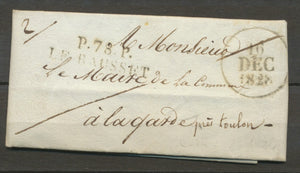 2
A Monsieur
P.78.P.
LE BAUSSET
16
DEC
1828
Le Maire de La Commune
à lagarde près toulon